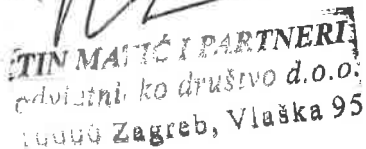 TIN MATIĆ I PARTNERI
odvjetničko društvo d.o.o.
10000 Zagreb, Vlaška 95